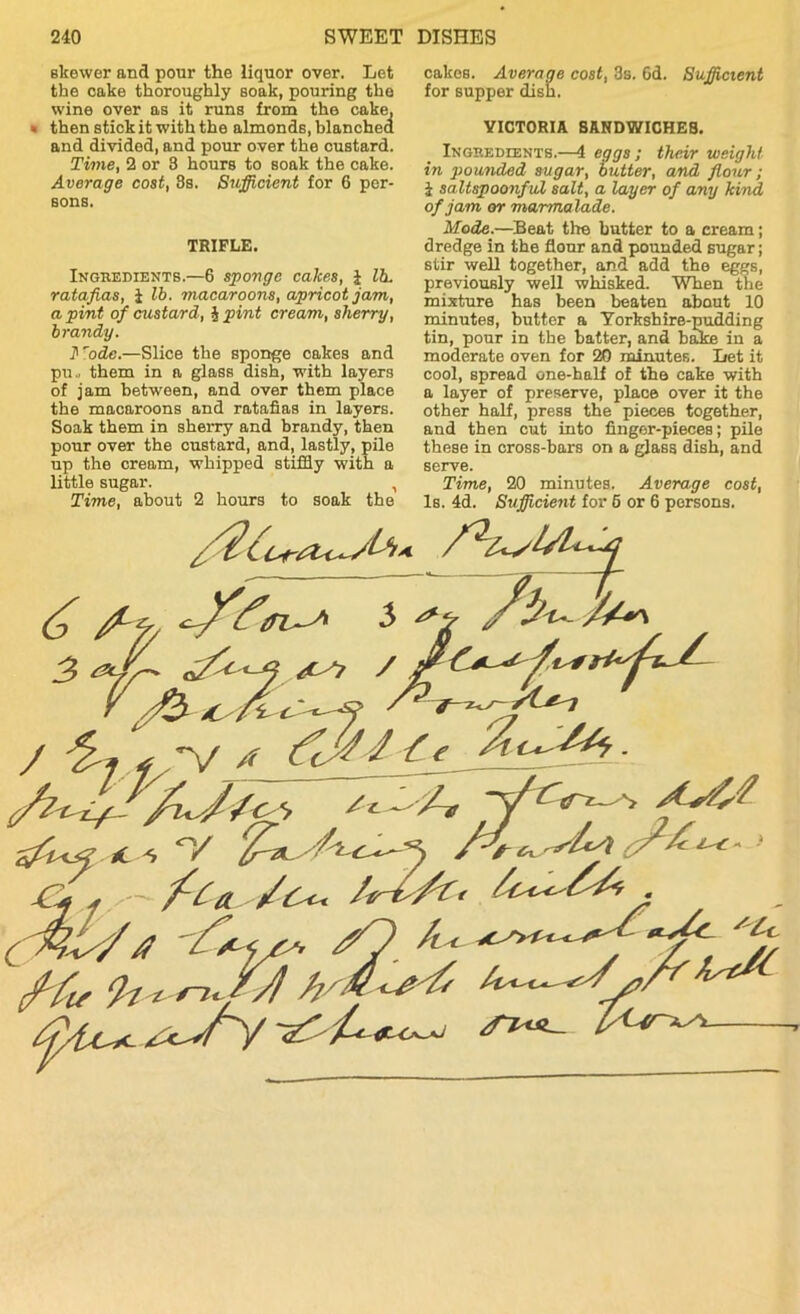 240 SWEET DISHES
skewer and pour the liquor over. Let
the cake thoroughly soak, pouring the
wine over as it runs from the cake,
then stick it with the almonds, blanched
and divided, and pour over the custard.
Time, 2 or 3 hours to soak the cake.
Average cost, 3s. Sufficient for 6 per-
sons.
TRIFLE.
INGREDIENTS.—6 sponge cakes, ¼ lb.
ratafias, ¼ lb. macaroons, apricot jam,
a pint of custard, ½ pint cream, sherry,
brandy.
Mode.—Slice the sponge cakes and
pu. them in a glass dish, with layers
of jam between, and over them place
the macaroons and ratafias in layers.
Soak them in sherry and brandy, then
pour over the custard, and, lastly, pile
up the cream, whipped stiffly with a
little sugar.
Time, about 2 hours to soak the
cakes. Average cost, 3s. 6d. Sufficient
for supper dish.
VICTORIA SANDWICHES.
INGREDIENTS.—4 eggs; their weight
in pounded sugar, butter, and flour;
¼ saltspoonful salt, a layer of any kind
of jam or marmalade.
Mode.—Beat the butter to a cream;
dredge in the flour and pounded sugar;
stir well together, and add the eggs,
previously well whisked. When the
mixture has been beaten about 10
minutes, butter a Yorkshire-pudding
tin, pour in the batter, and bake in a
moderate oven for 20 minutes. Let it
cool, spread one-half of the cake with
a layer of preserve, place over it the
other half, press the pieces together,
and then cut into finger-pieces; pile
these in cross-bars on a glass dish, and
serve.
Time, 20 minutes. Average cost,
1s. 4d. Sufficient for 5 or 6 persons.
Pudding
6 oz Flour 3 oz Butter
3 oz Sugar 1 teaspoonful
Baking Powder
1 Egg & a little Milk.
Butter Flour add
Sugar & Baking Powder then
Egg